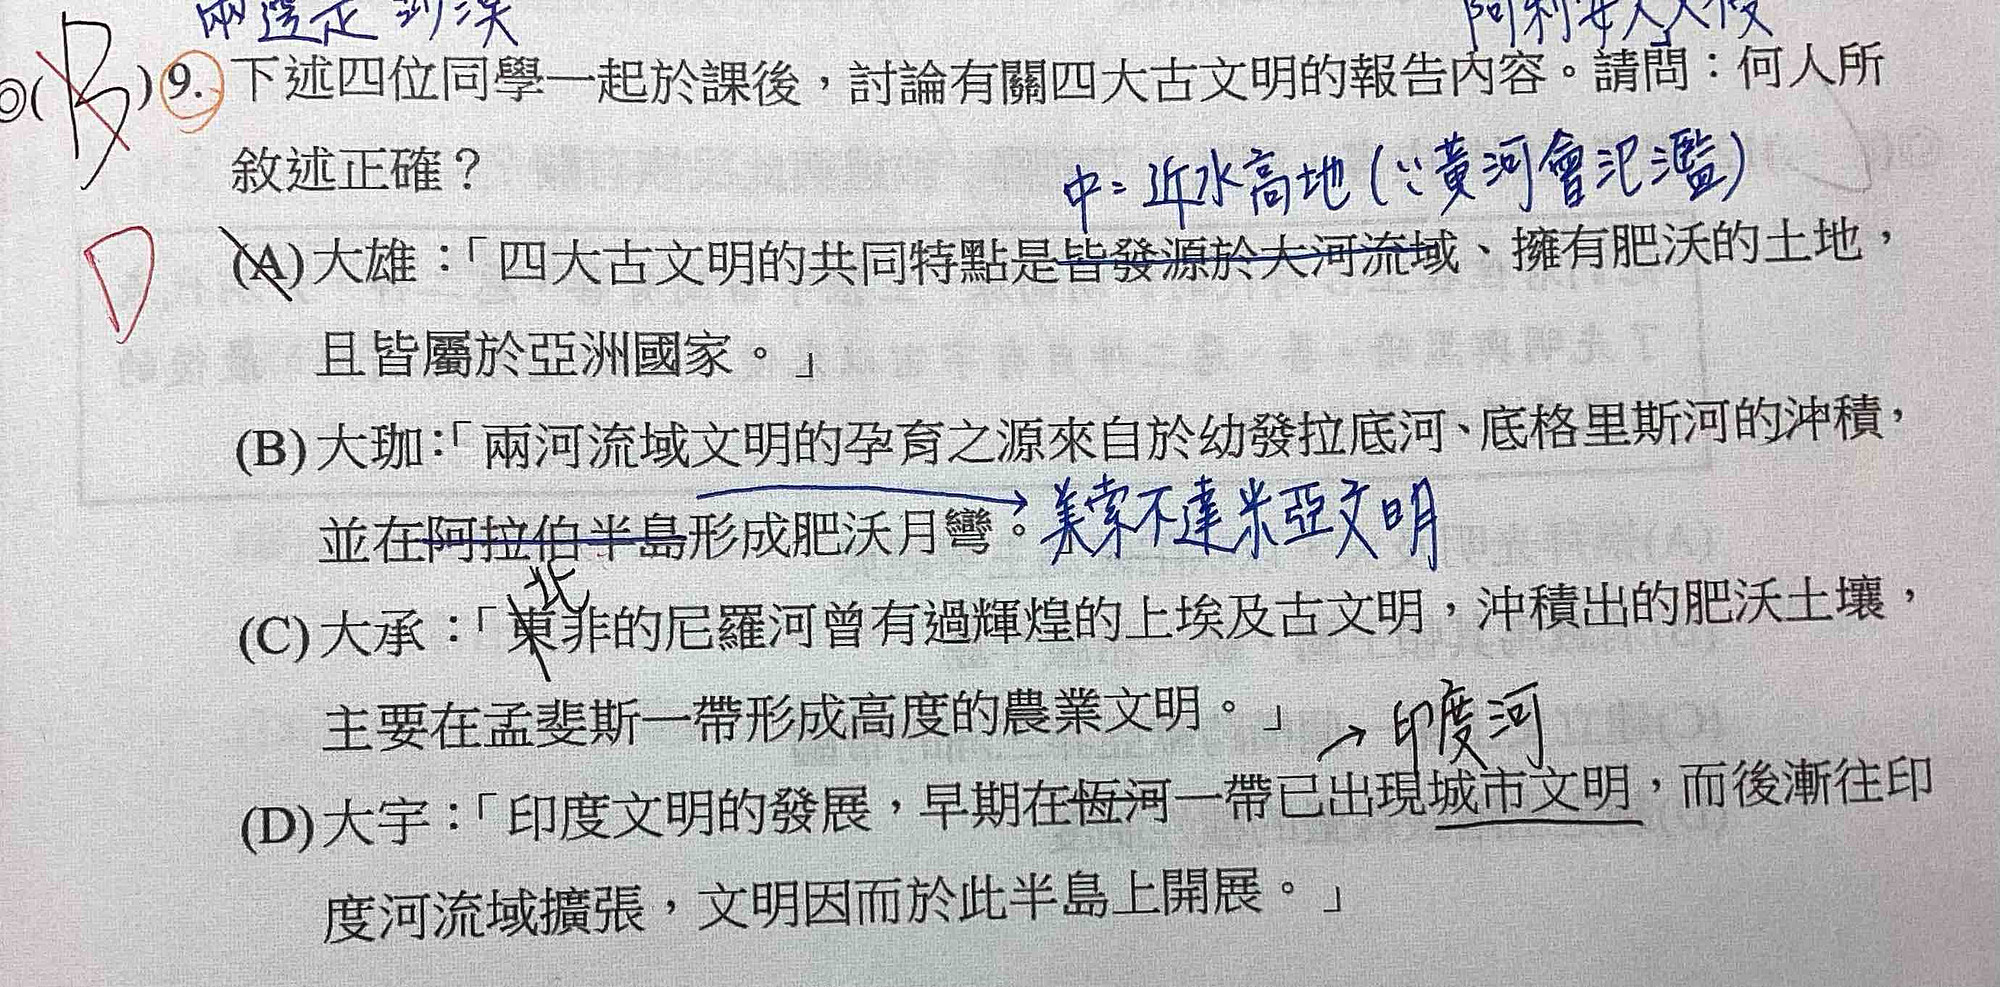 兩 迄 沙漠
阿利安人入侵
◎(B)9.下述四位同學一起於課後，討論有關四大古文明的報告內容。請問：何人所
敘述正確？
中=近水高地(∵黃河會氾濫)
D
(A)大雄：「四大古文明的共同特點是皆發源於大河流域、擁有肥沃的土地，
且皆屬於亞洲國家。」
(B)大珈：「兩河流域文明的孕育之源來自於幼發拉底河、底格里斯河的沖積，
並在阿拉伯半島形成肥沃月彎。
→美索不達米亞文明
北
(C)大承：「東非的尼羅河曾有過輝煌的上埃及古文明，沖積出的肥沃土壤，
主要在孟斐斯一帶形成高度的農業文明。」
→印度河
(D)大宇：「印度文明的發展，早期在恆河一帶已出現城市文明，而後漸往印
度河流域擴張，文明因而於此半島上開展。」